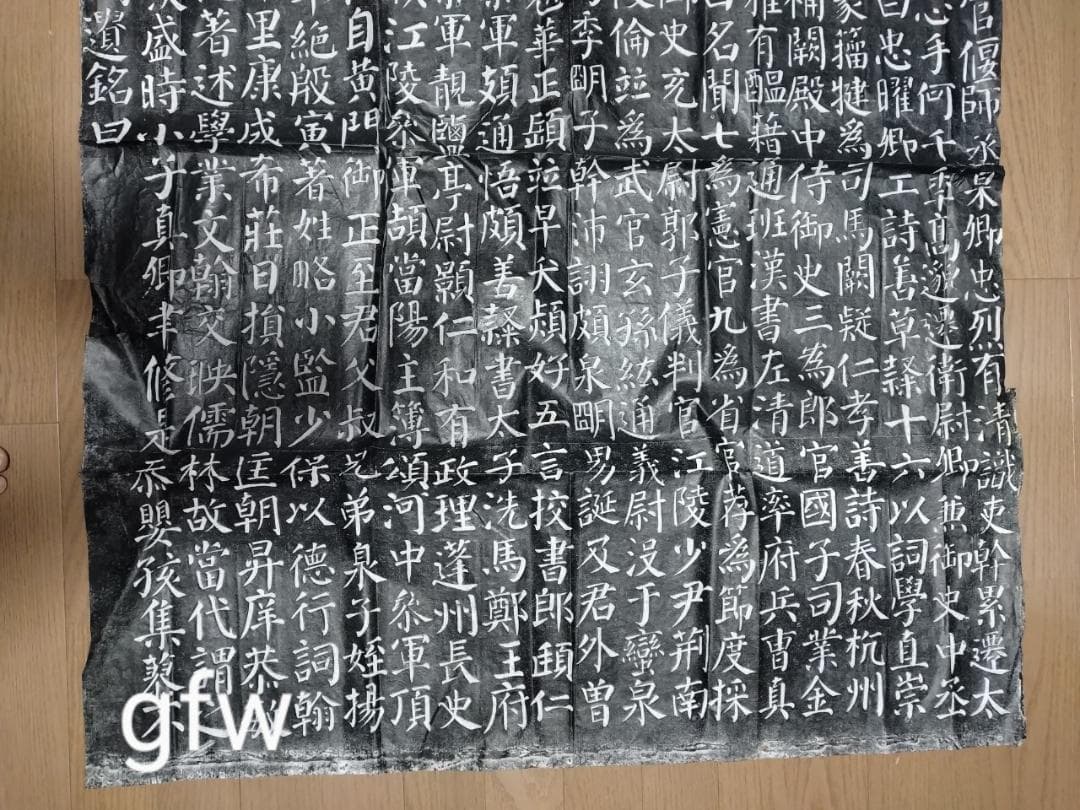 官偃師丞杲卿忠烈有清識吏幹累遷太
忠手何千年髙邈遷衛尉卿兼御史中丞
曰忠曜卿工詩善草隸十六以詞學直崇
蒙籀犍為司馬闕疑仁孝善詩春秋杭州
補闕殿中侍御史三為郎官國子司業金
雅有醞藉通班漢書左清道率府兵曹真
名聞七為憲官九為省官荐為節度採
御史充太尉郭子儀判官江陵少尹荊南
陵倫並為武官玄孫紘通義尉沒于蠻泉
季明子幹沛詡頗泉明男誕及君外曾
華正顗並早夭熲好五言校書郎頲仁
軍頍通悟頗善隸書太子洗馬鄭王府
軍靚鹽亭尉顥仁和有政理蓬州長史
江陵叅軍頡當陽主簿頌河中叅軍頂
自黃門御正至君父叔兄弟泉子姪揚
絕殷寅著姓略小監少保以德行詞翰
里康成希莊日損隱朝匡朝昇庠恭
著述學業文翰交映儒林故當代謂
盛時小子真卿聿修是忝嬰孩集蓼
遺銘曰
gfw